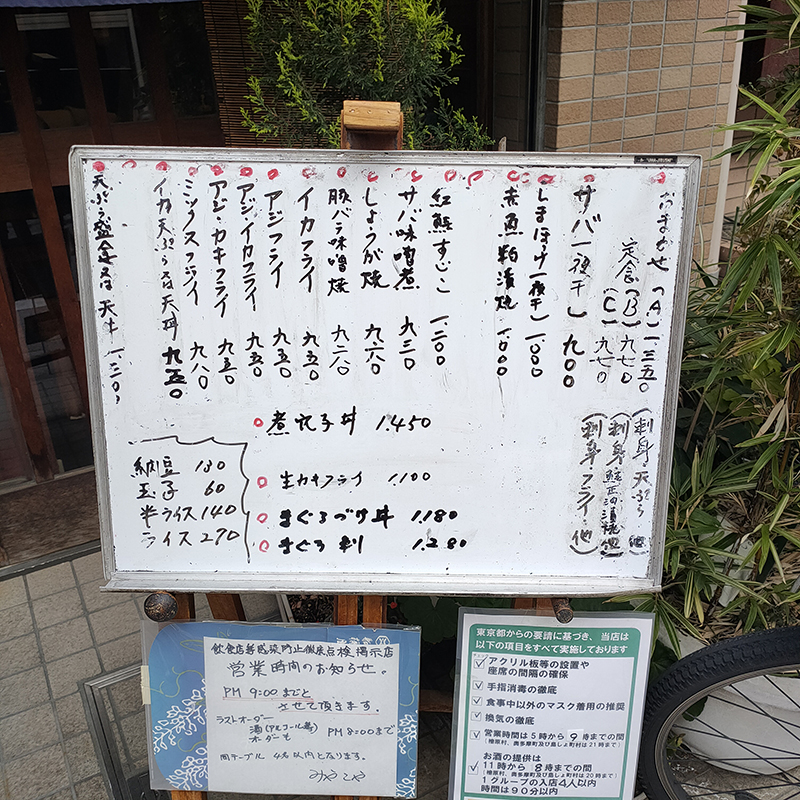 おまかせ定食(A)一三五〇(刺身 天ぷら 他)
(B)九七〇(刺身 鮭西の漬焼 他)
(C)九七〇(刺身 フライ 他)
サバ一夜干し 九〇〇
しまほっけ一夜干 一、〇〇〇
赤魚粕漬焼 一、〇〇〇
紅鮭すじこ 一二〇〇
サバ味噌煮 九三〇
しょうが焼 九六〇
豚バラ味噌焼 九二八〇
イカフライ 九五〇
アジフライ 九五〇
アジ・イカフライ 九五〇
アジ・カキフライ 九五〇
ミックスフライ 九八〇
イカ天ぷら又は天丼 九五〇
天ぷら盛合又は天丼
煮穴子丼 1.450
生カキフライ 1.100
まぐろづけ丼 1.180
まぐろ刺 1.280
納豆 130
玉子 60
半ライス 140
ライス 270
飲食店等感染防止徹底点検掲示店
営業時間のお知らせ。
PM 9:00までと
させて頂きます。
ラストオーダー
酒(アルコール等)
オーダーも PM 8:00まで
同テーブル 4名以内となります。
みやこや
東京都からの要請に基づき、当店は
以下の項目をすべて実施しております
アクリル板等の設置や
座席の間隔の確保
手指消毒の徹底
食事中以外のマスク着用の推奨
換気の徹底
営業時間は5時から9時までの間
(檜原村、奥多摩町及び島しょ町村は21時まで)
お酒の提供は
11時から8時までの間
(檜原村、奥多摩町及び島しょ町村は20時まで)
1グループの入店4人以内
時間は90分以内